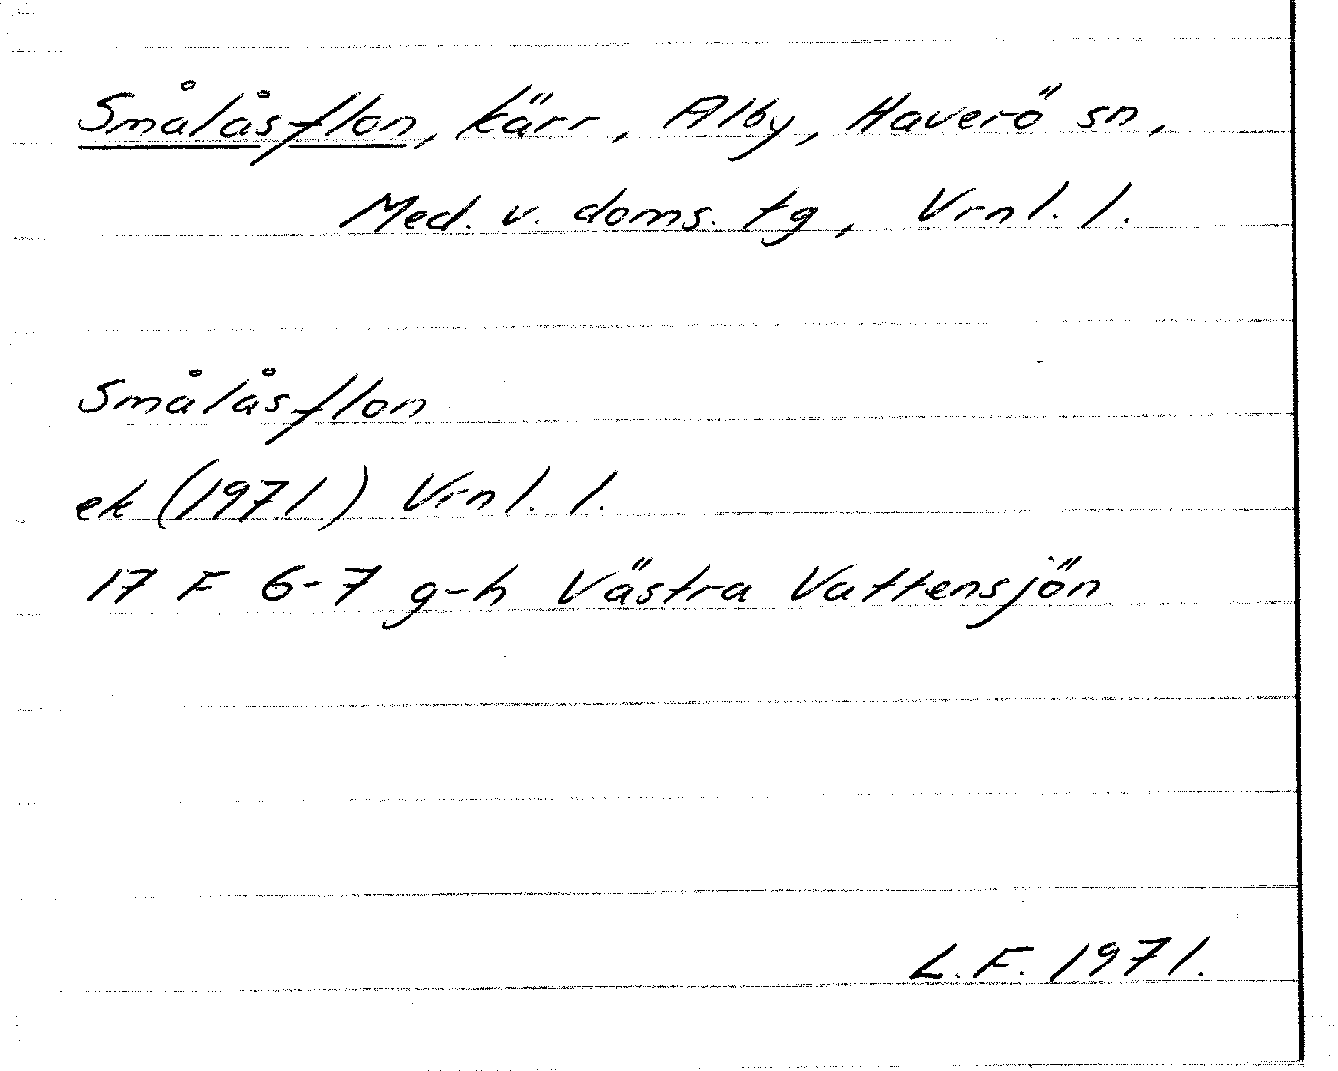 Smålåsflon, kärr, Alby, Haverö sn,
Med. v. doms. tg, Vrnl. l.
Smålåsflon
ek (1971) Vrnl. l.
17 F 6-7 g-h Västra Vattensjön
L.F. 1971.